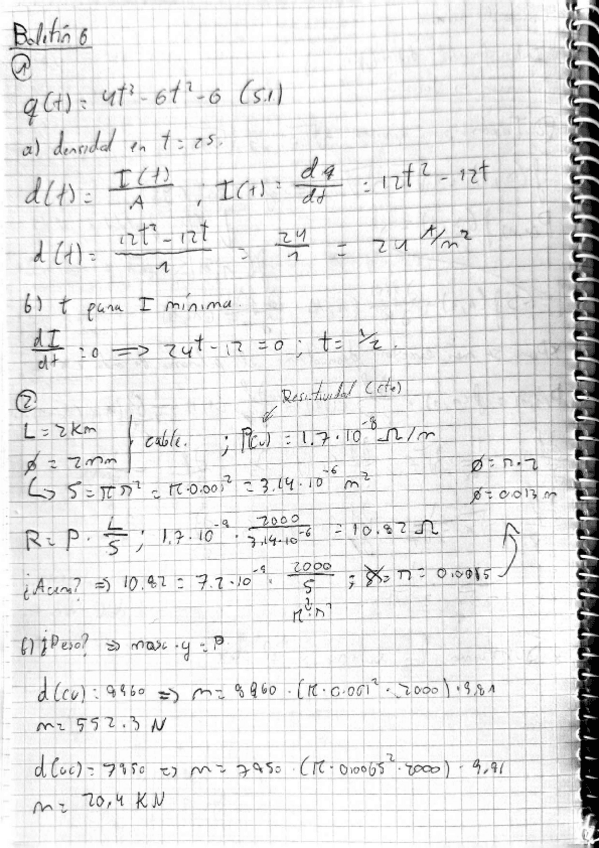 Boletín 6
①
q(t) = 4t³ - 6t² - 6 (S.I)
a) densidad en t = 2s.
d(t) = I(t)/A , I(t) = dq/dt = 12t² - 12t
d(t) = (12t² - 12t)/1 = 24/1 = 24 A/m²
b) t para I mínima.
dI/dt = 0 ⟹ 24t - 12 = 0 ; t = 1/2 .
②
Resistividad (cte)
L = 2 Km
cable. ; P(cu) = 1.7·10⁻⁸ Ω/m
ø = 2mm
ø = r·2
↳ S = πr² = π·0.001² = 3.14·10⁻⁶ m²
ø = 0.013 m
R = P · L/S ; 1.7·10⁻⁸ · 2000/3.14·10⁻⁶ = 10.82 Ω
⇒ 10.82 = 7.2·10⁻⁸ · 2000/S ; r = 0.0065
π·r²
b) ¿Peso? ⇒ masa·g = P
d(cu) = 8960 ⇒ m = 8960 · (π·0.001²·2000)·9.81
m = 552.3 N
d(ac) = 7850 ⇒ m = 7850 · (π·0.0065²·2000) · 9.81
m = 20,4 KN